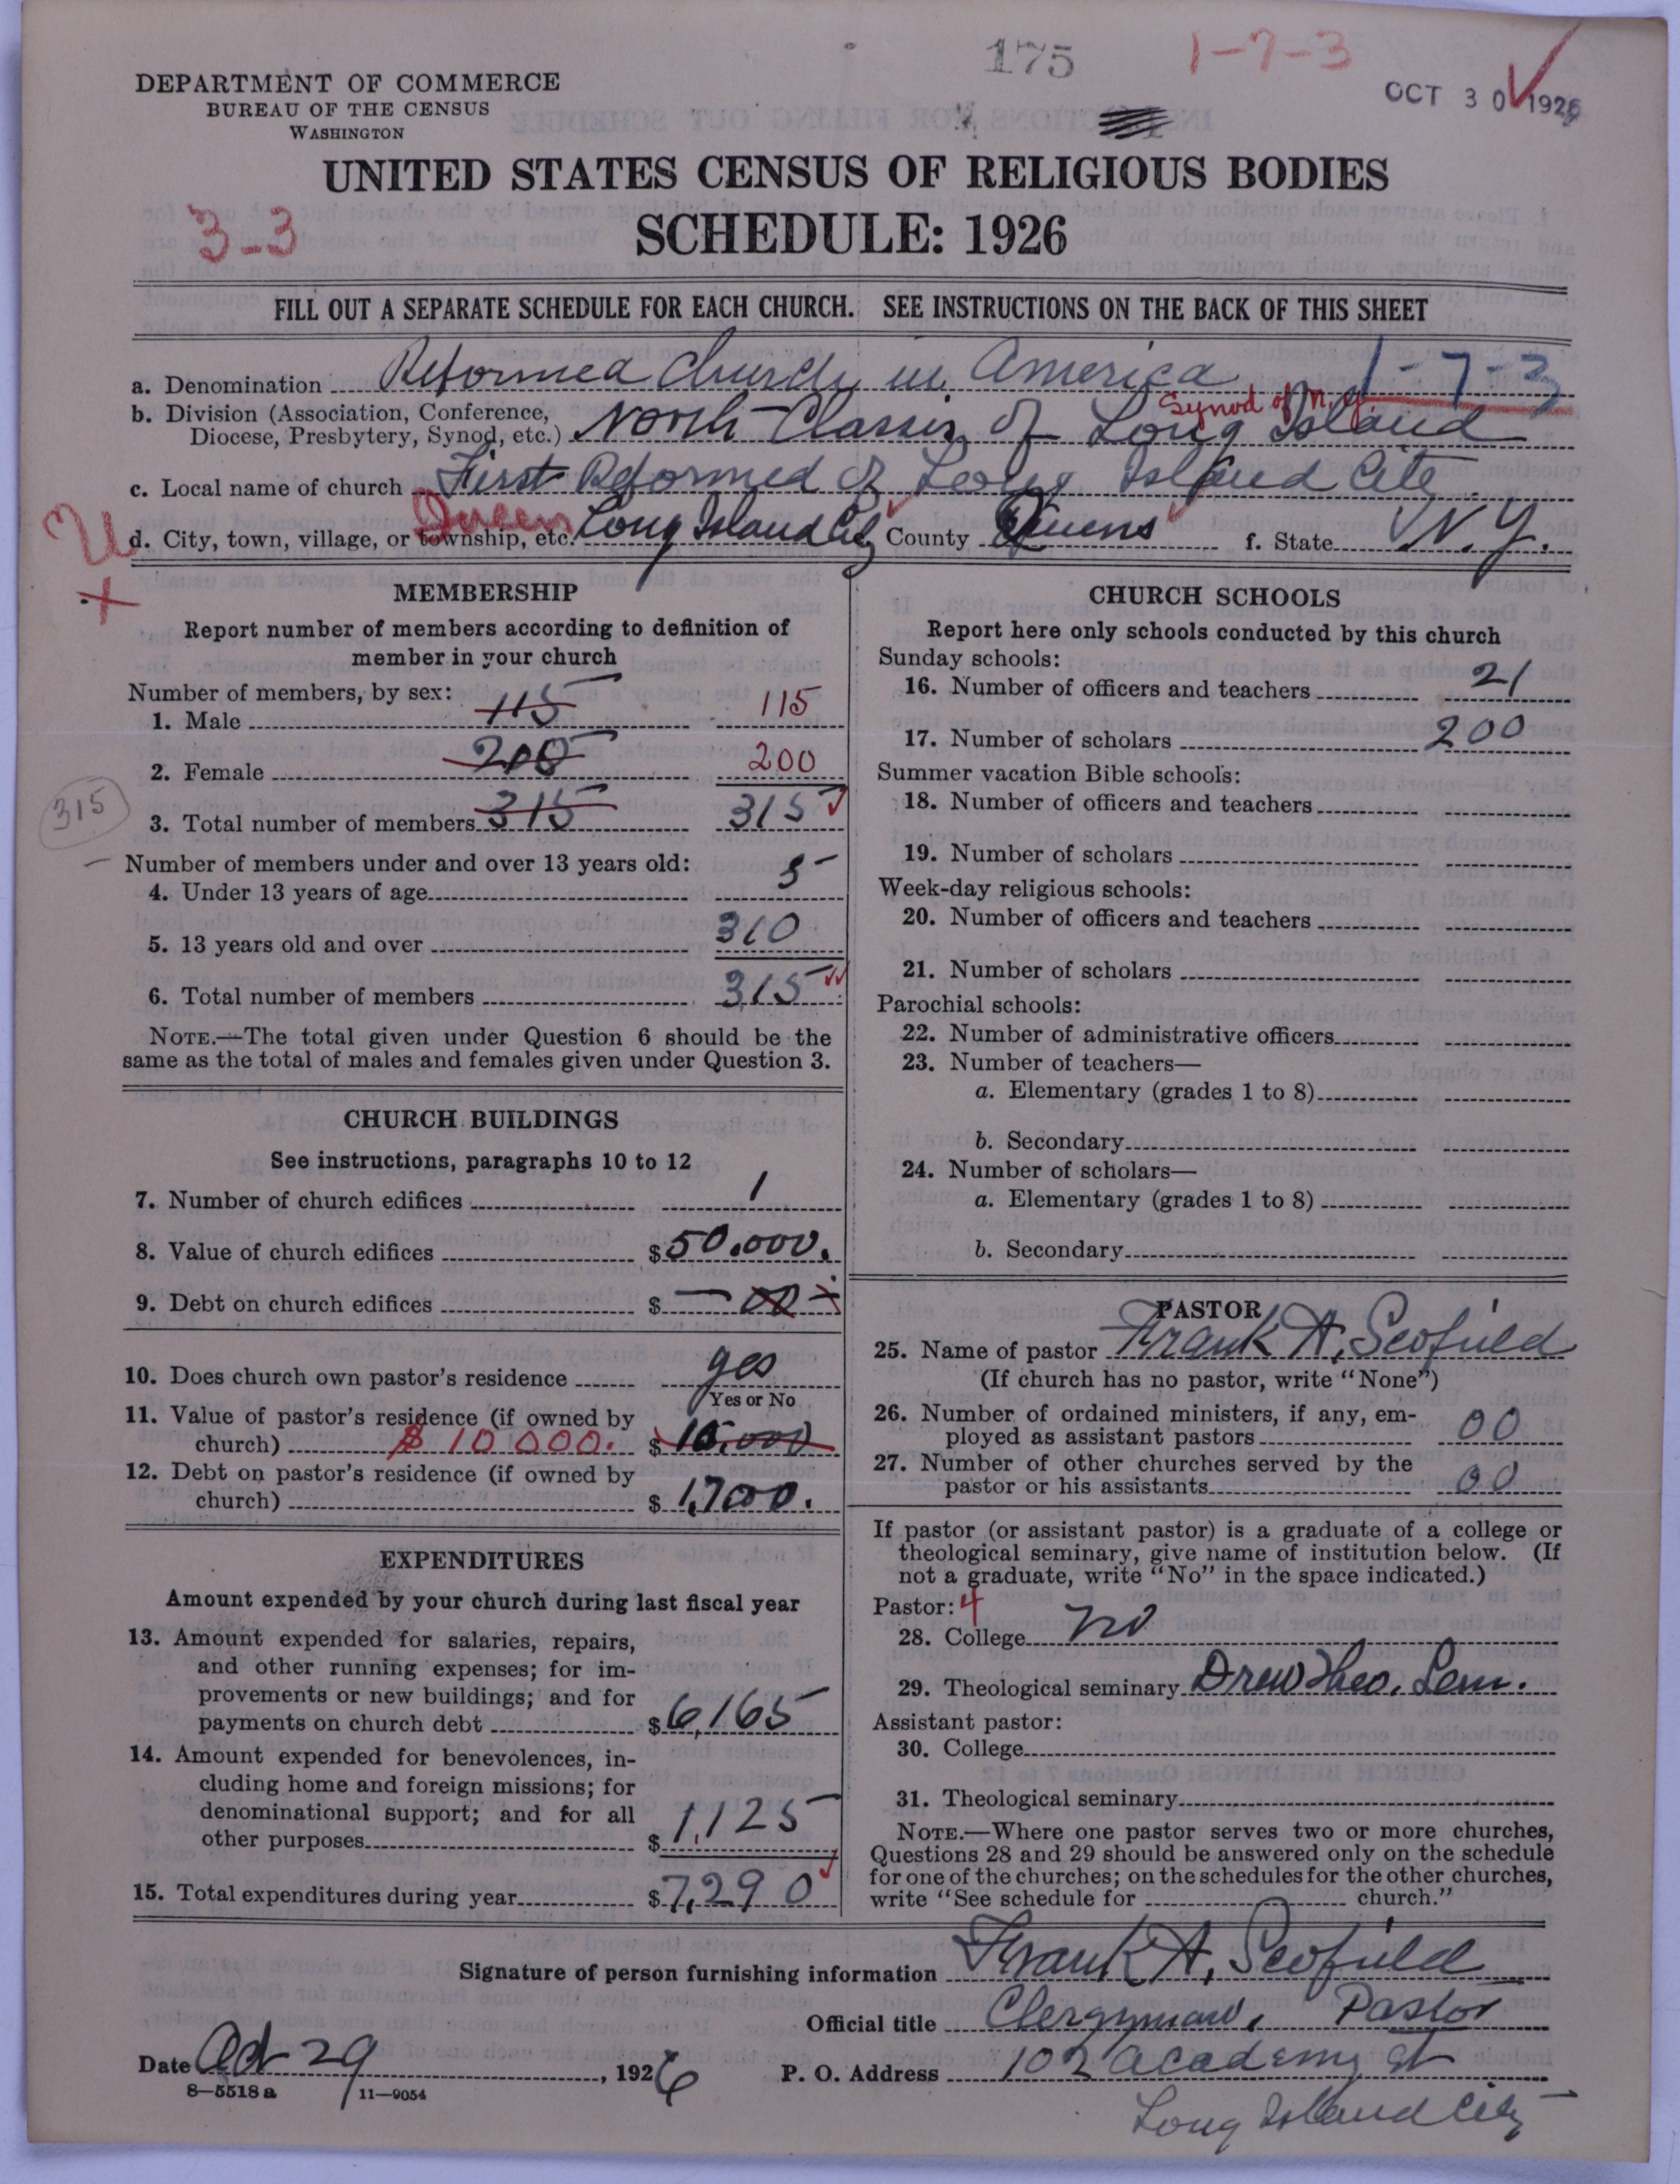 175
1-7-3
OCT 30 1926
DEPARTMENT OF COMMERCE
BUREAU OF THE CENSUS
WASHINGTON
UNITED STATES CENSUS OF RELIGIOUS BODIES
3-3
SCHEDULE: 1926
FILL OUT A SEPARATE SCHEDULE FOR EACH CHURCH. SEE INSTRUCTIONS ON THE BACK OF THIS SHEET
a. Denomination Reformed Church in America 1-7-3
Synod of N.Y.
b. Division (Association, Conference,
Diocese, Presbytery, Synod, etc.) North Classis of Long Island
c. Local name of church First Reformed of Long Island City
Queens
d. City, town, village, or township, etc. Long Island City County Queens f. State N.Y.
MEMBERSHIP
Report number of members according to definition of
member in your church
Number of members, by sex:
1. Male 115 115
2. Female 200 200
315
3. Total number of members 315 315
Number of members under and over 13 years old:
4. Under 13 years of age 5
5. 13 years old and over 310
6. Total number of members 315
NOTE.—The total given under Question 6 should be the
same as the total of males and females given under Question 3.
CHURCH BUILDINGS
See instructions, paragraphs 10 to 12
7. Number of church edifices 1
8. Value of church edifices $50.000.
9. Debt on church edifices $ — 00 —
10. Does church own pastor's residence yes
Yes or No
11. Value of pastor's residence (if owned by
church) $10000. $10.000
12. Debt on pastor's residence (if owned by
church) $1,700.
EXPENDITURES
Amount expended by your church during last fiscal year
13. Amount expended for salaries, repairs,
and other running expenses; for im-
provements or new buildings; and for
payments on church debt $6,165
14. Amount expended for benevolences, in-
cluding home and foreign missions; for
denominational support; and for all
other purposes $1,125
15. Total expenditures during year $7,290
CHURCH SCHOOLS
Report here only schools conducted by this church
Sunday schools:
16. Number of officers and teachers 21
17. Number of scholars 200
Summer vacation Bible schools:
18. Number of officers and teachers
19. Number of scholars
Week-day religious schools:
20. Number of officers and teachers
21. Number of scholars
Parochial schools:
22. Number of administrative officers
23. Number of teachers—
a. Elementary (grades 1 to 8)
b. Secondary
24. Number of scholars—
a. Elementary (grades 1 to 8)
b. Secondary
PASTOR
25. Name of pastor Frank A. Scofield
(If church has no pastor, write "None")
26. Number of ordained ministers, if any, em-
ployed as assistant pastors 00
27. Number of other churches served by the
pastor or his assistants 00
If pastor (or assistant pastor) is a graduate of a college or
theological seminary, give name of institution below. (If
not a graduate, write "No" in the space indicated.)
Pastor: 4
28. College no
29. Theological seminary Drew Theo. Sem.
Assistant pastor:
30. College
31. Theological seminary
NOTE.—Where one pastor serves two or more churches,
Questions 28 and 29 should be answered only on the schedule
for one of the churches; on the schedules for the other churches,
write "See schedule for church."
Signature of person furnishing information Frank A. Scofield
Official title Clergyman, Pastor
Date Oct 29, 1926 P. O. Address 102 Academy St
8—5518a 11—9054
Long Island City